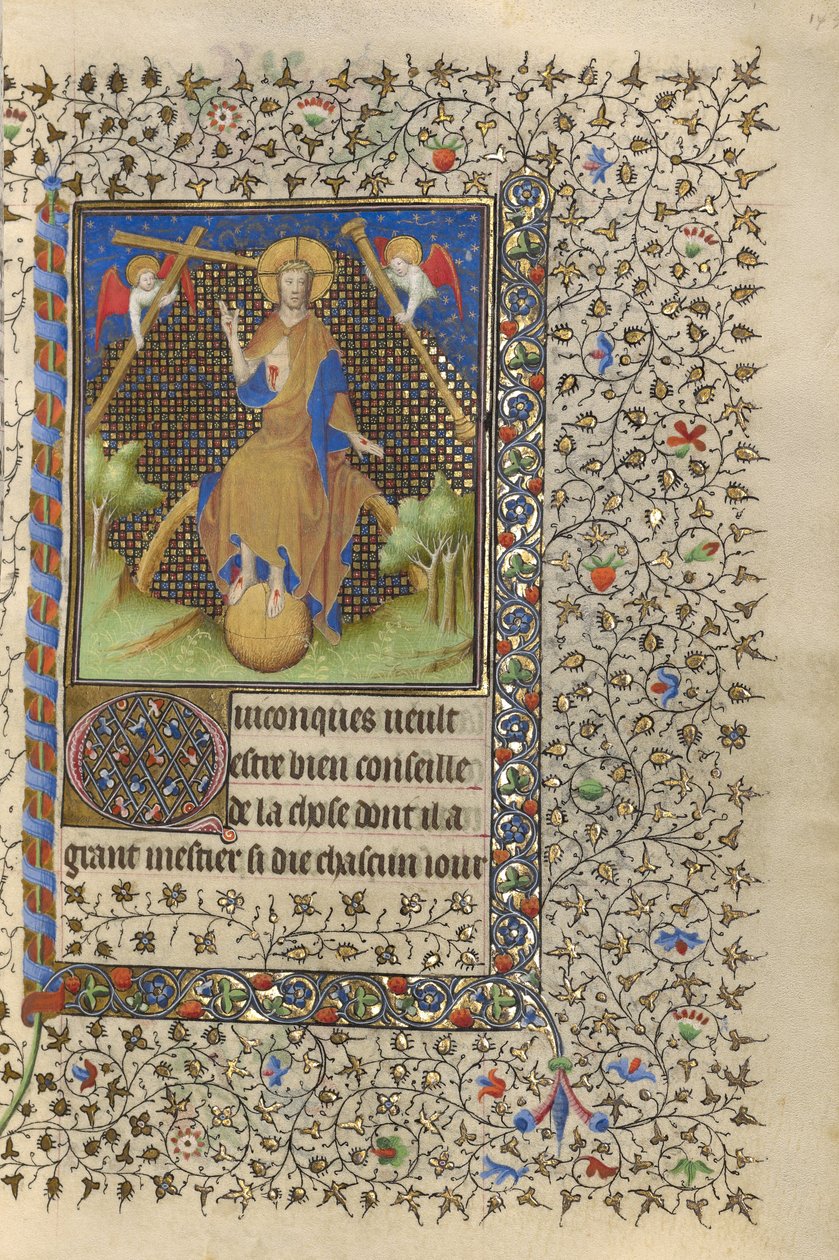 Quiconques ueult
estre bien conseille
de la chose dont il a
grant mestier si die chascun iour